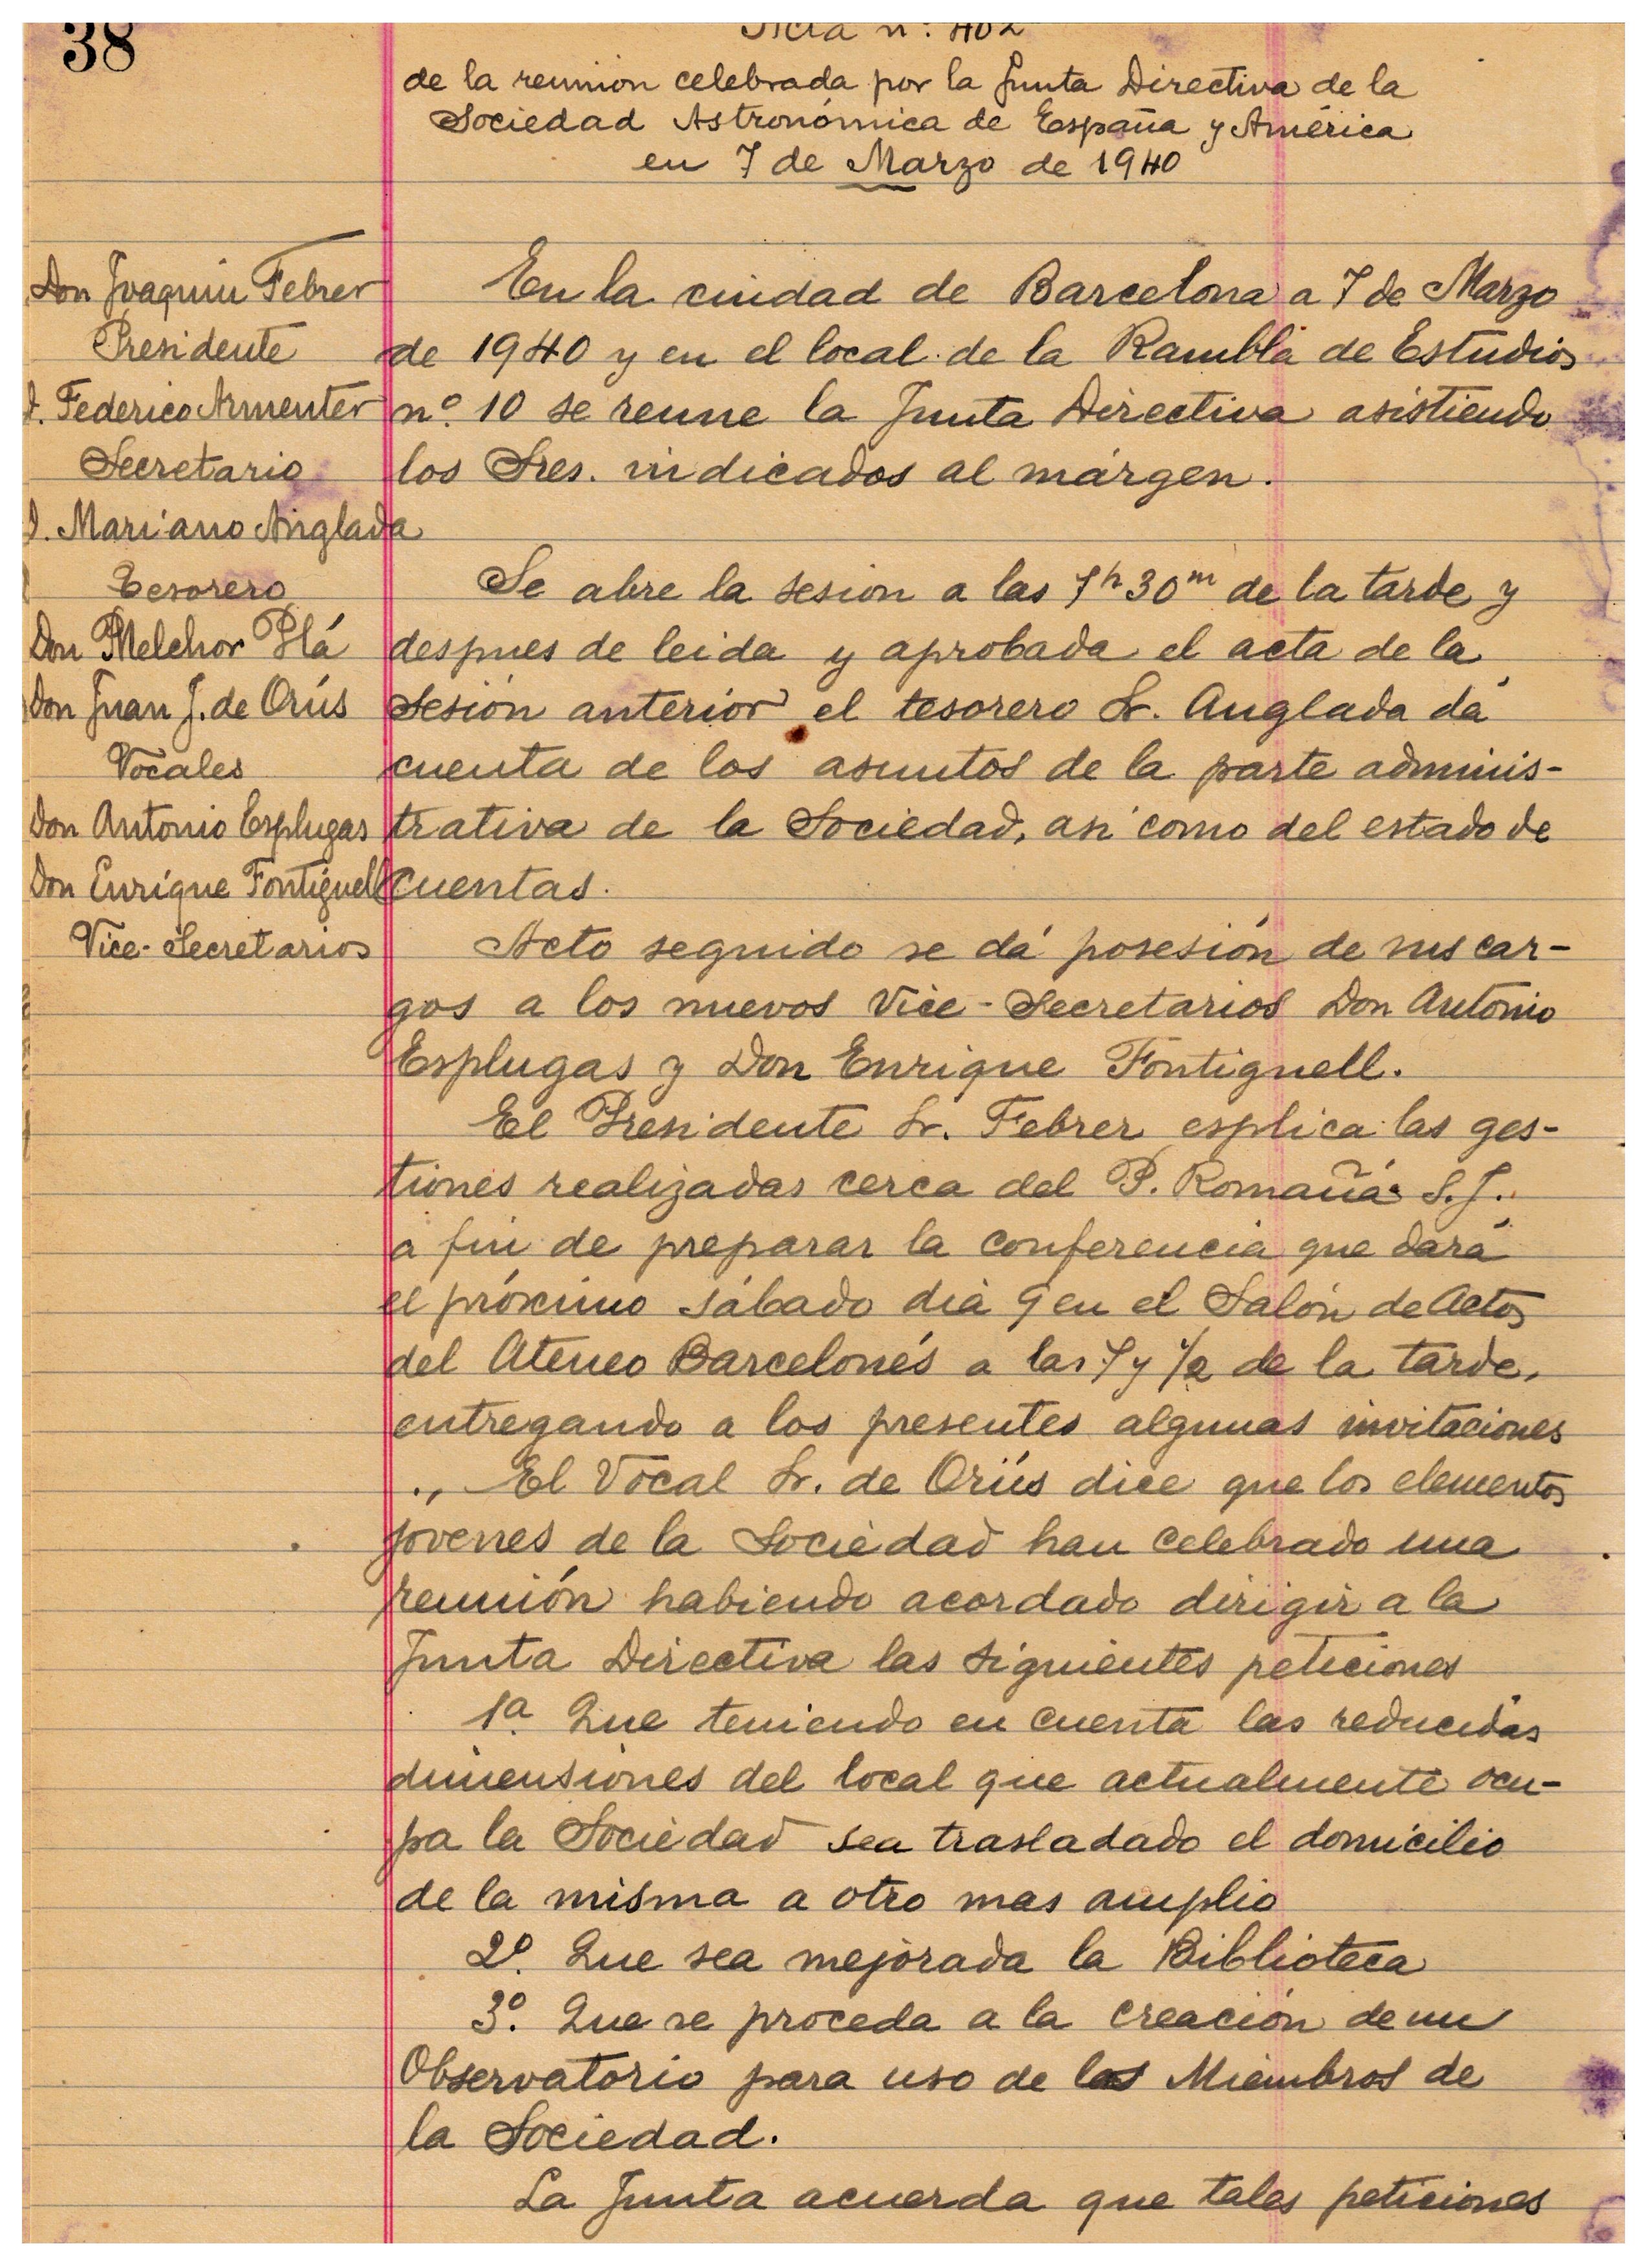 38
Acta n.º 402
de la reunion celebrada por la Junta Directiva de la
Sociedad Astronómica de España y América
en 7 de Marzo de 1940
Don Joaquin Febrer
Presidente
D. Federico Armenter
Secretario
D. Mariano Anglada
Tesorero
Don Melchor Plá
Don Juan J. de Orús
Vocales
Don Antonio Esplugas
Don Enrique Fontiguell
Vice-Secretarios
En la ciudad de Barcelona a 7 de Marzo
de 1940 y en el local de la Rambla de Estudios
nº. 10 se reune la Junta Directiva asistiendo
los Sres. indicados al márgen.
Se abre la sesion a las 7h 30m de la tarde y
despues de leida y aprobada el acta de la
sesión anterior el tesorero Sr. Anglada dá
cuenta de los asuntos de la parte adminis-
trativa de la Sociedad, asi como del estado de
cuentas.
Acto seguido se dá posesión de sus car-
gos a los nuevos Vice-Secretarios Don Antonio
Esplugas y Don Enrique Fontiguell.
El Presidente Sr. Febrer esplica las ges-
tiones realizadas cerca del P. Romañá S.J.
a fin de preparar la conferencia que dará
el próximo sábado dia 9 en el Salón de Actos
del Ateneo Barcelonés a las 7 y 1/2 de la tarde,
entregando a los presentes algunas invitaciones
., El Vocal Sr. de Orús dice que los elementos
jovenes de la Sociedad han celebrado una
reunión habiendo acordado dirigir a la
Junta Directiva las siguientes peticiones
1ª. Que teniendo en cuenta las reducidas
dimensiones del local que actualmente ocu-
pa la Sociedad sea trasladado el domicilio
de la misma a otro mas amplio
2º. Que sea mejorada la Biblioteca
3º. Que se proceda a la creación de un
Observatorio para uso de los Miembros de
la Sociedad.
La Junta acuerda que tales peticiones